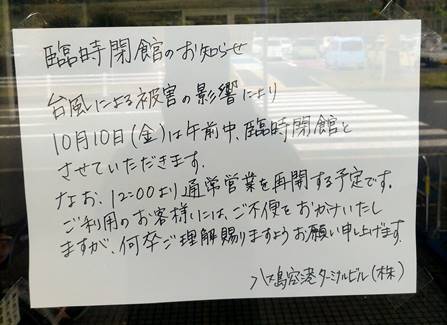 臨時閉館のお知らせ
台風による被害の影響により
10月10日(金)は午前中、臨時閉館と
させていただきます。
なお、12:00より通常営業を再開する予定です。
ご利用のお客様には、ご不便をおかけいたし
ますが、何卒ご理解賜りますようお願い申し上げます。
八丈島空港ターミナルビル(株)